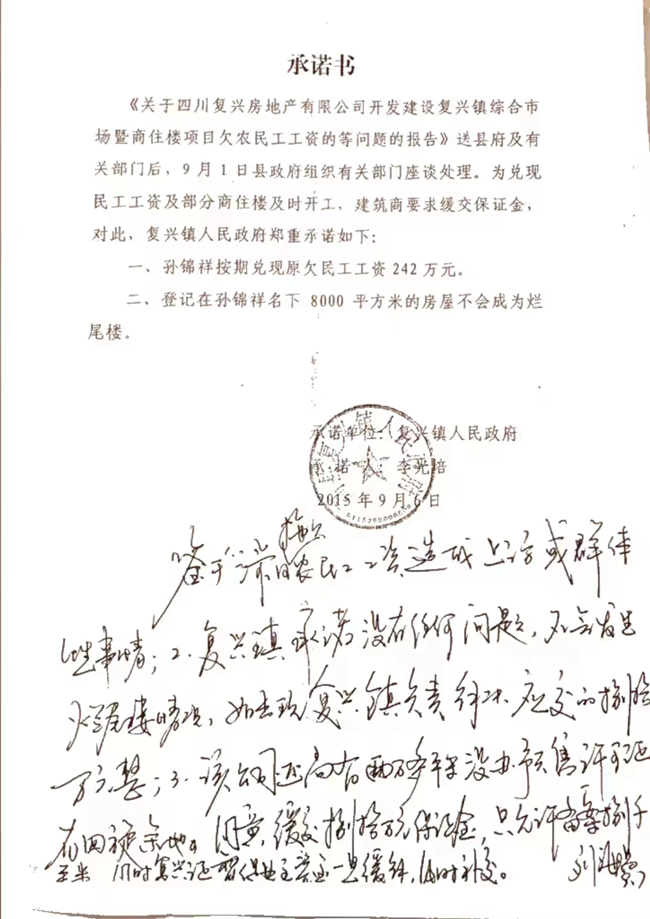 承诺书
《关于四川复兴房地产有限公司开发建设复兴镇综合市
场暨商住楼项目欠农民工工资的等问题的报告》送县府及有
关部门后，9月1日县政府组织有关部门座谈处理。为兑现
民工工资及部分商住楼及时开工，建筑商要求缓交保证金，
对此，复兴镇人民政府郑重承诺如下：
一、孙锦祥按期兑现原欠民工工资242万元。
二、登记在孙锦祥名下 8000 平方米的房屋不会成为烂
尾楼。
承诺单位：复兴镇人民政府
承 诺 人：李光培
2015年9月6日
拖欠
鉴于 农民工工资造成上访或群体
性事情；2.复兴镇承诺没有任何问题，不会发生
烂尾楼情况，如出现复兴镇负责 应交的捌拾
万元整；3.该公司还尚有 没办预售许可证
同意缓交捌拾万元保证金，只允许备案捌仟
平米 同时复兴